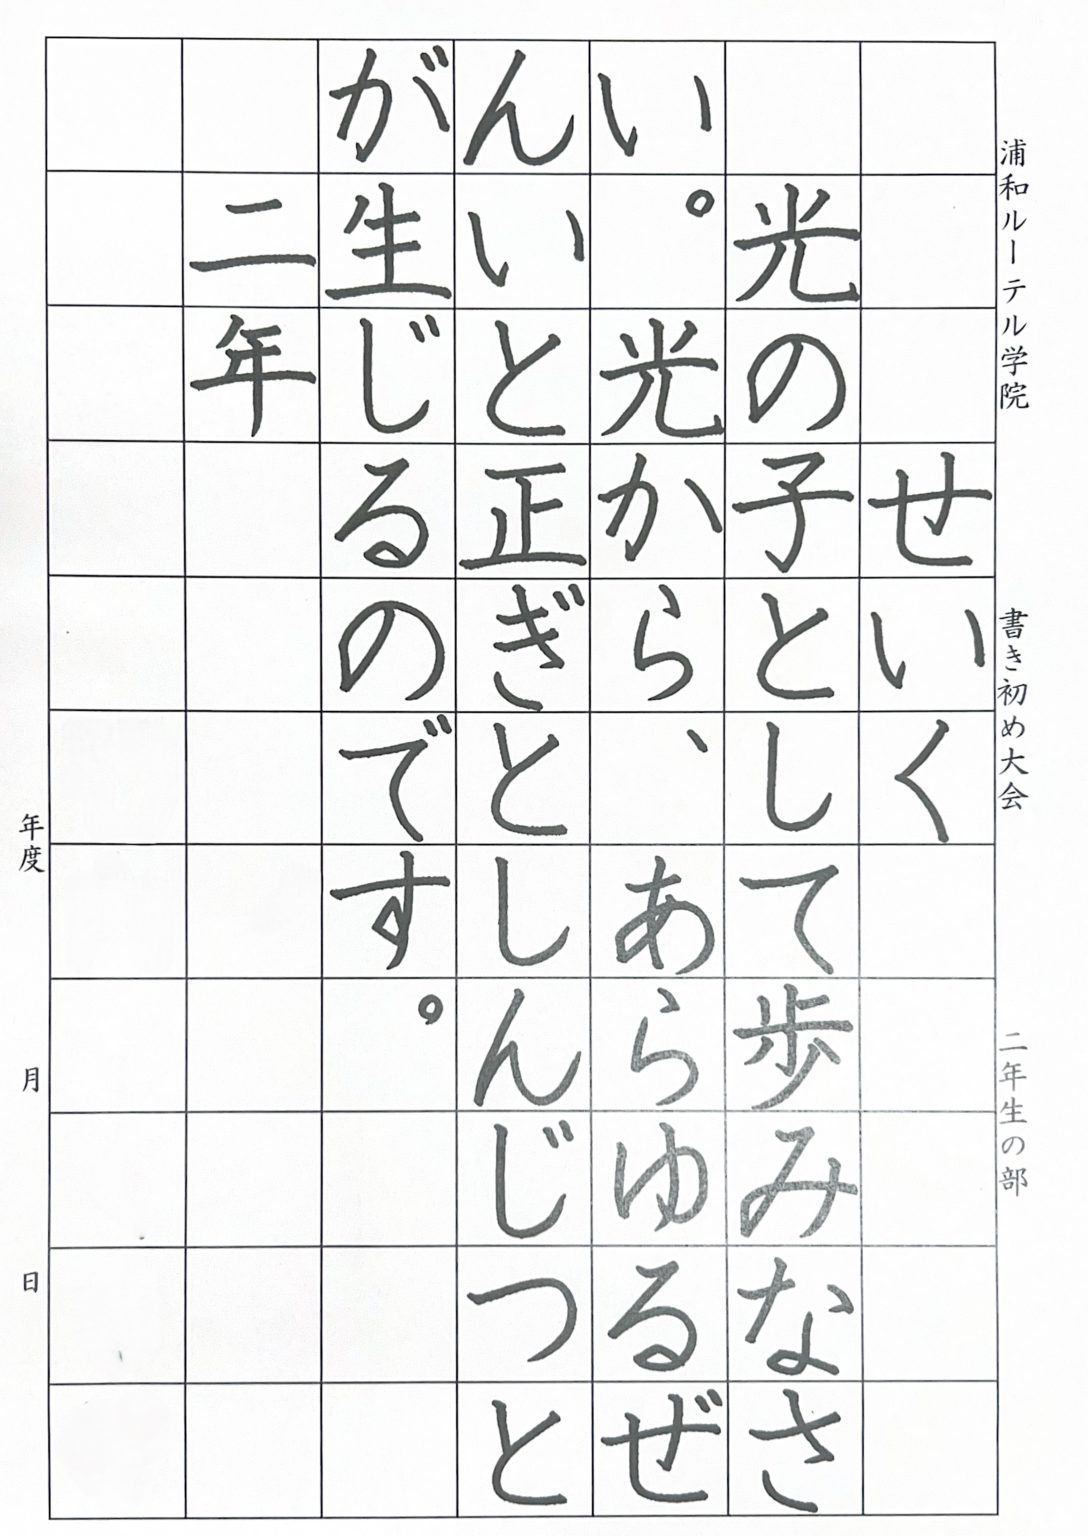 浦和ルーテル学院　書き初め大会　二年生の部
せいく
光の子として歩みなさ
い。光から、あらゆるぜ
んいと正ぎとしんじつと
が生じるのです。
二年
年度　月　日